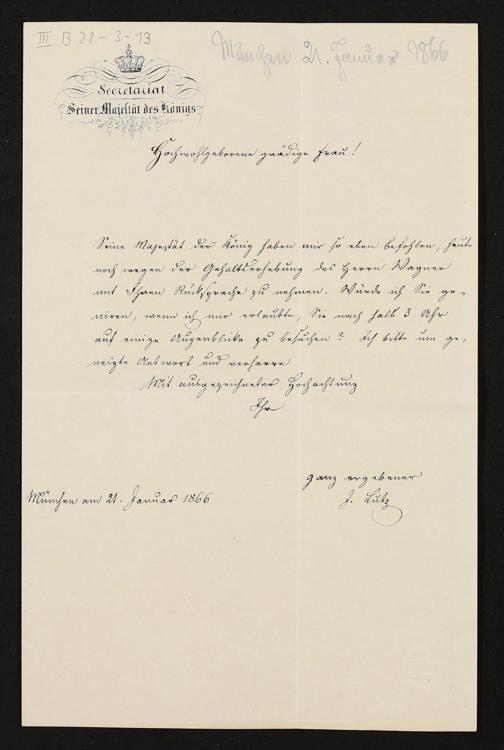 III B 28-3-13
München 21. Januar 1866
Secretariat
Seiner Majestät des Königs
Hochwohlgeborene gnädige Frau!
Seine Majestät der König haben mir so eben befohlen, heute
noch wegen der Gehaltserhebung des Herrn Wagner
mit Ihnen Rücksprache zu nehmen. Würde ich Sie ge-
niren, wenn ich mir erlaubte, Sie nach halb 3 Uhr
auf einige Augenblicke zu besuchen? Ich bitte um ge-
neigte Antwort und verharre
Mit ausgezeichneter Hochachtung
Ihr
ganz ergebener
J. Lutz
München am 21. Januar 1866